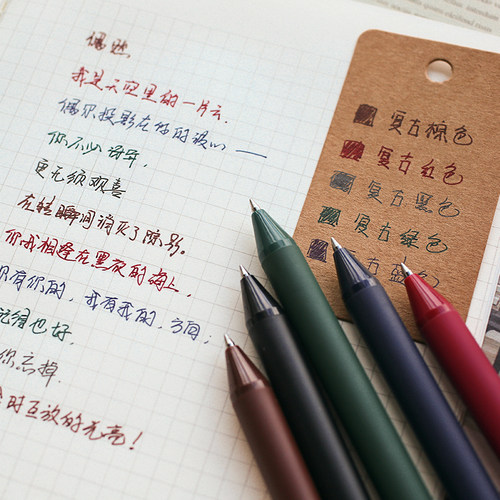 偶然
我是天空里的一片云,
偶尔投影在你的波心 ——
你不必讶异,
更无须欢喜
在转瞬间消灭了踪影。
你我相逢在黑夜的海上,
你有你的,我有我的,方向;
得也好,
你忘掉
时互放的光亮!
复古棕色
复古红色
复古黑色
复古绿色
古 色